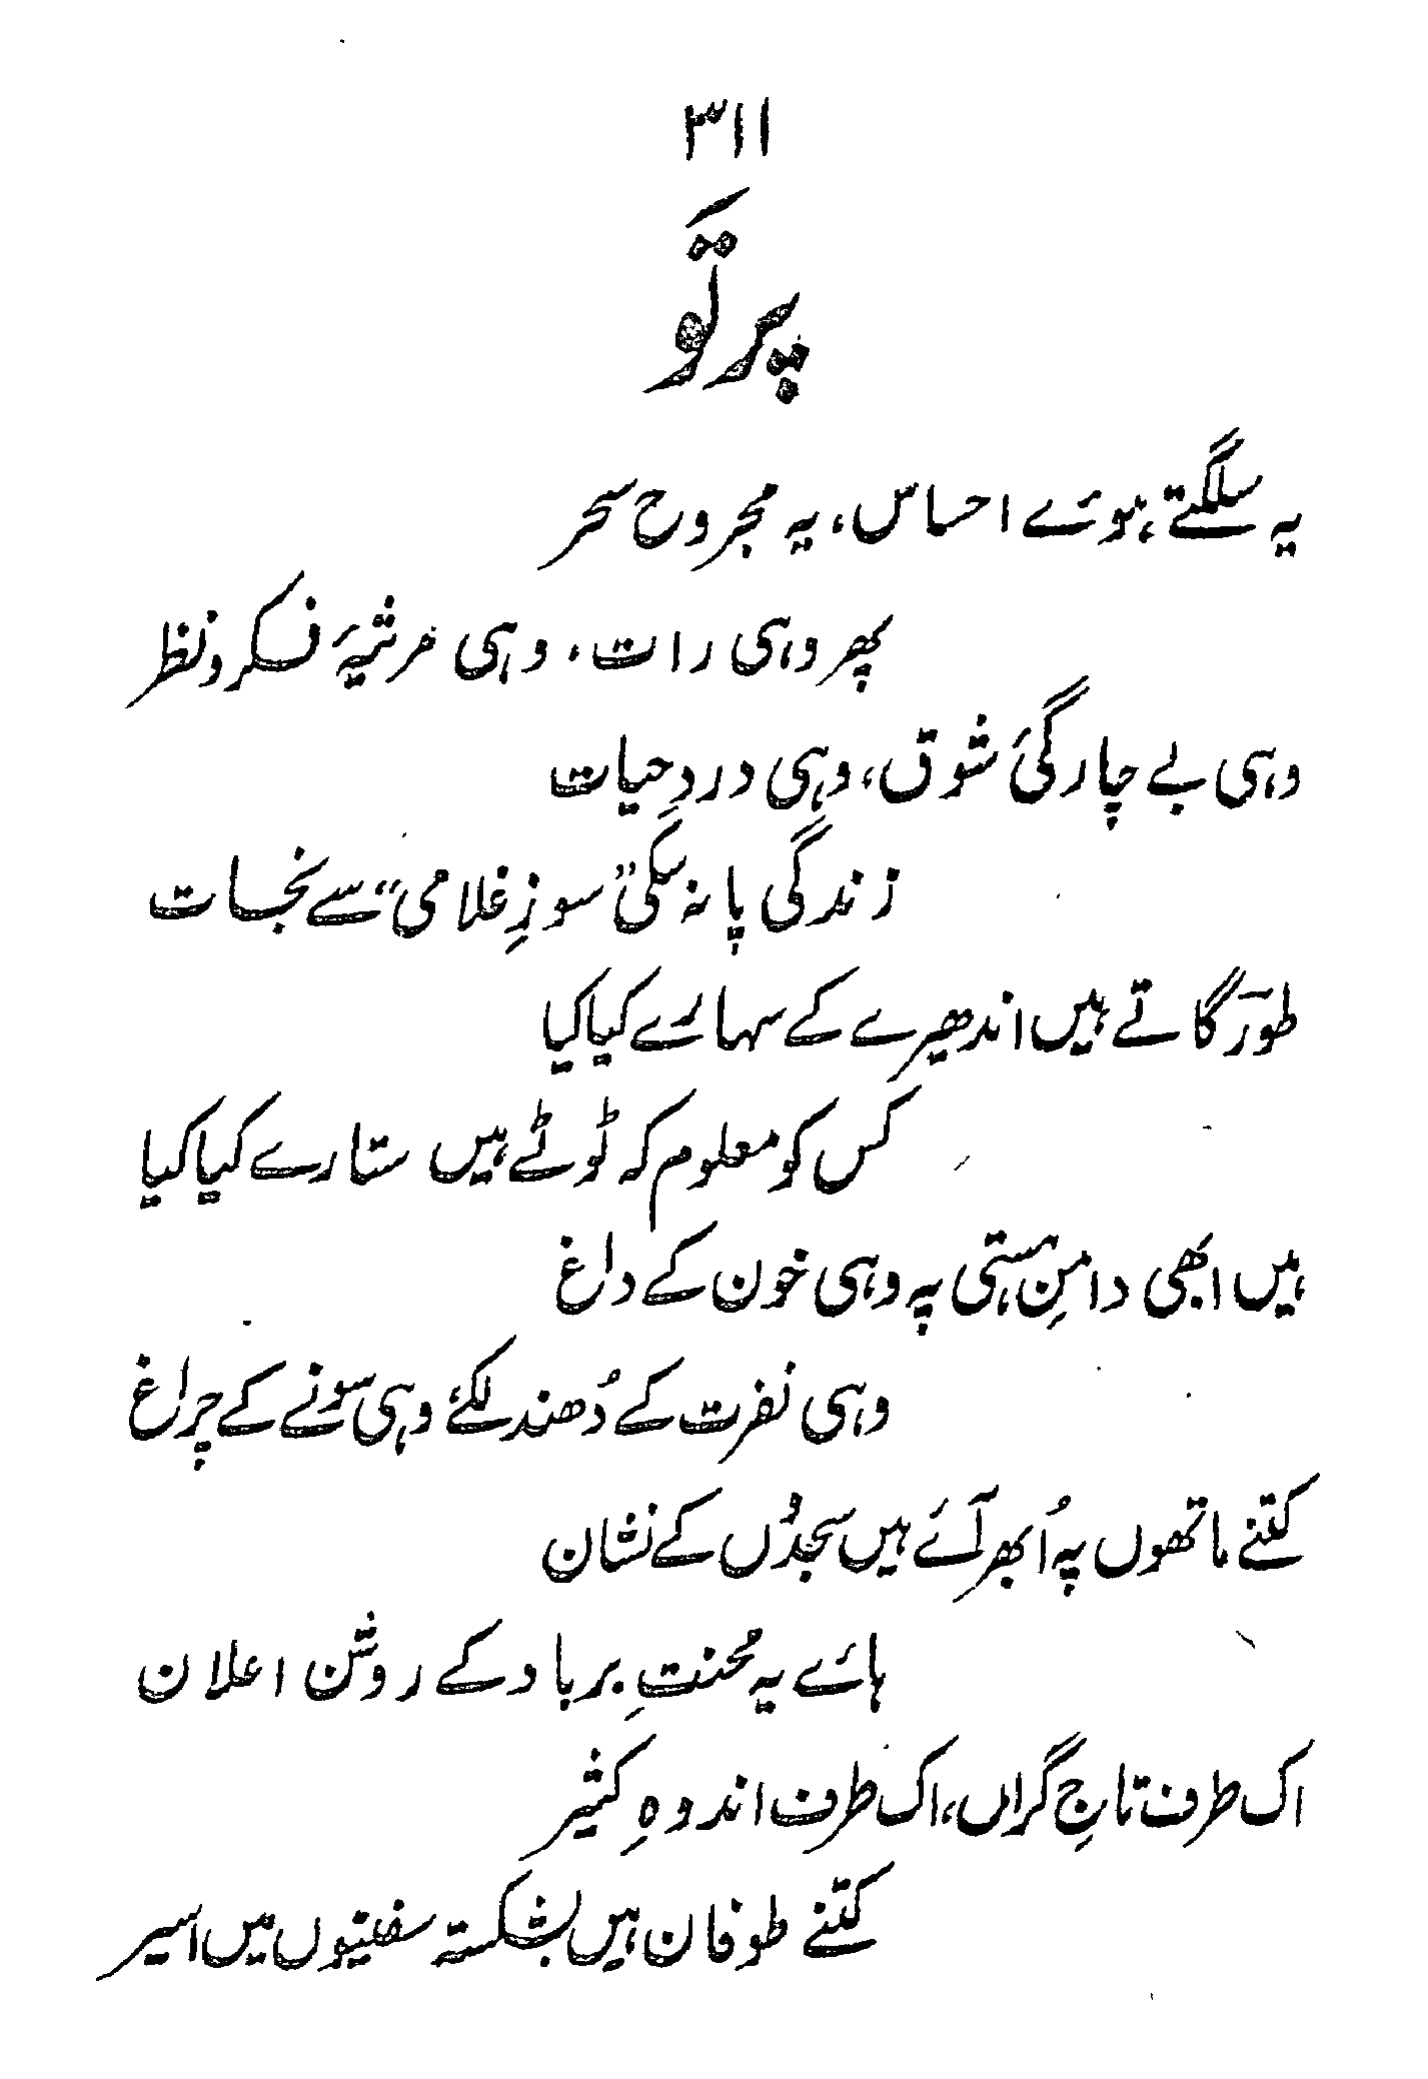 ۳۱۱
پرتَو
یہ سلگتے ہوئے احساس، یہ مجروح سحر
پھر وہی رات، وہی مرثیۂ فکر و نظر
وہی بے چارگیٔ شوق، وہی دردِ حیات
زندگی پا نہ سکی "سوزِ غلامی" سے نجات
طورؔ گاتے ہیں اندھیرے کے سہارے کیا کیا
کس کو معلوم کہ ٹوٹے ہیں ستارے کیا کیا
ہیں ابھی دامنِ ہستی پہ وہی خون کے داغ
وہی نفرت کے دُھندلکے، وہی سونے کے چراغ
کتنے ماتھوں پہ اُبھر آئے ہیں سجدُوں کے نشان
ہائے یہ محنتِ برباد کے روشن اعلان
اک طرف تاجِ گراں، اک طرف اندوہِ کثیر
کتنے طوفان ہیں شکستہ سفینوں میں اسیر